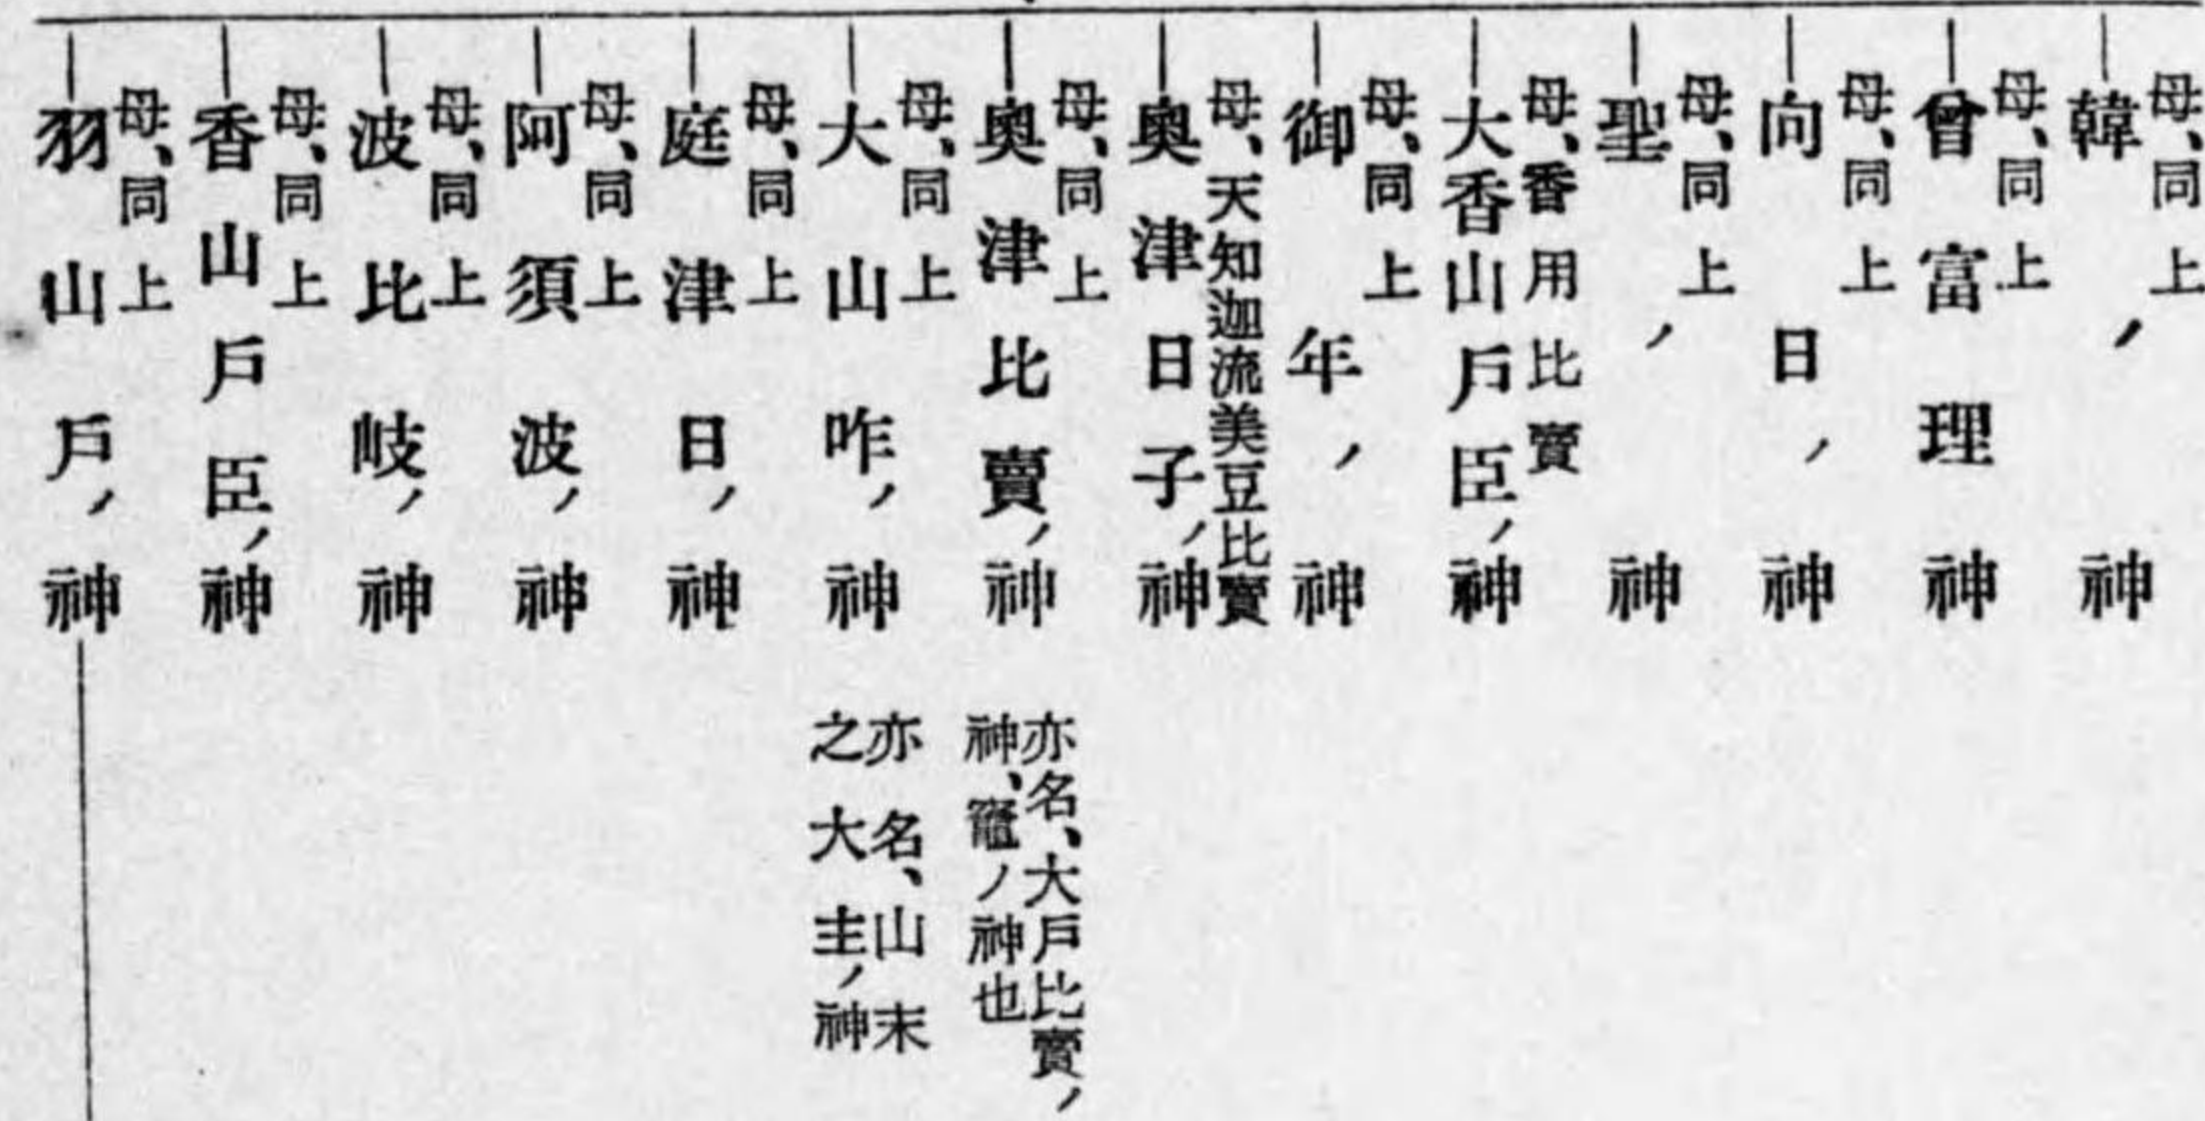 母、同上
韓ノ神
母、同上
曾富理神
母、同上
向日ノ神
母、同上
聖ノ神
母、香用比賣
大香山戶臣ノ神
母、同上
御年ノ神
母、天知迦流美豆比賣
奧津日子ノ神
母、同上
奧津比賣ノ神
亦名、大戶比賣ノ
神、竈ノ神也
母、同上
大山咋ノ神
亦名、山末
之大主ノ神
母、同上
庭津日ノ神
母、同上
阿須波ノ神
母、同上
波比岐ノ神
母、同上
香山戶臣ノ神
母、同上
羽山戶ノ神